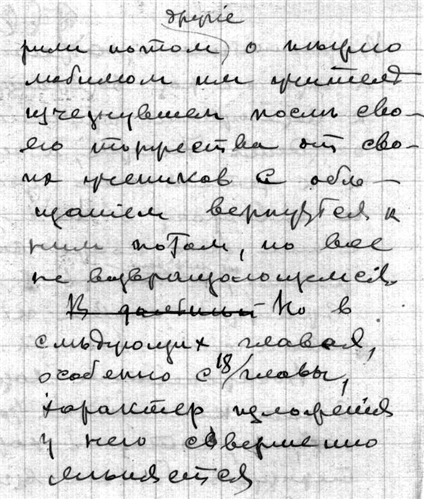 другіе
рили потом) о
любимом им учителѣ
изчезнувшем послѣ сво-
его торжества от сво-
их учеников с обѣ-
щаніем вернуться к
ним потом, но все
не возвращающемся.
Но в
слѣдующих главах,
особенно с 18/главы,
характер изложения
у него совершенно